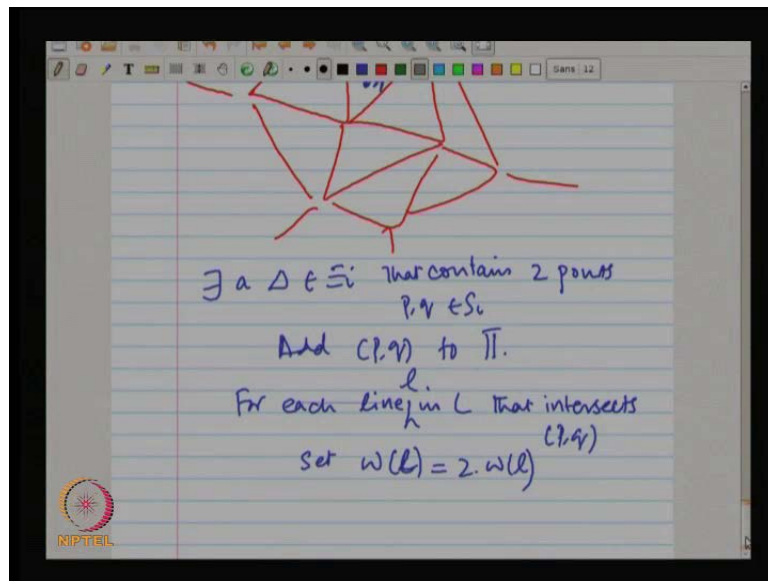 Sans 12
∃ a Δ ∈ Ξi that contain 2 points
p,q ∈ Si
Add (p,q) to Π.
For each line l in L that intersects
(p,q)
Set w(l) = 2.w(l)
NPTEL